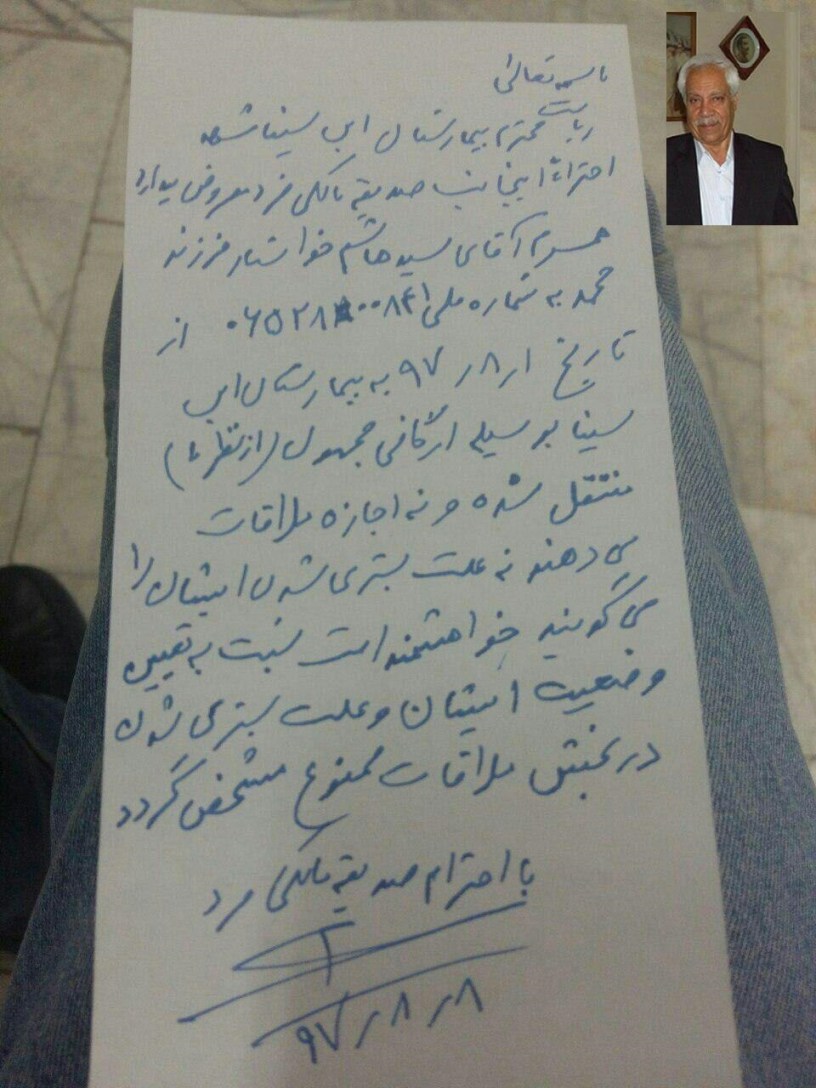 باسمه تعالی
ریاست محترم بیمارستان ابن سینا مشهد
احتراماً اینجانب صدیقه مالکی فرد معروض میدارد
همسرم آقای سید هاشم خواستار فرزند
محمد به شماره ملی ۰۶۵۲۸ ۰۰۸۴۱ از
تاریخ ۱ر۸ر۹۷ به بیمارستان ابن
سینا بوسیله ارگانی مجهول (از نظر ما)
منتقل شده و نه اجازه ملاقات
می دهند نه علت بستری شدن ایشان را
می گویند خواهشمند است نسبت به تعیین
وضعیت ایشان و علت بستری شدن
در بخش ملاقات ممنوع مشخص گردد
با احترام صدیقه مالکی فرد
۸ر۸ر۹۷